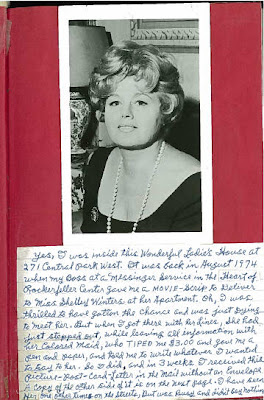 Yes, I was inside this Wonderful Ladie's House at
271 Central Park West. It was back in August 1974
when my Boss at a Messinger Service in the Heart of
Rockerfeller Center gave me a MOVIE-Scrip to Deliver
to Miss Shelley Winters at her Apartment. Oh, I was
thrilled to have gotten the Chance and was just Dying
to meet her. But when I got there with her Lines, She had
Just stepped out, while leaving all information with
her Colored Maid, who TIPED me $3.00 and gave me a
Pen and Paper, and told me to write whatever I wanted
to Say to her. So I did, and in 3 weeks I received this
Picture-Post-Card-Letter in the Mail without an Envelope
a Copy of the other side of it is on the next page. I have seen
Her one other times on the Streets, but was Busy and didn't Say nothing